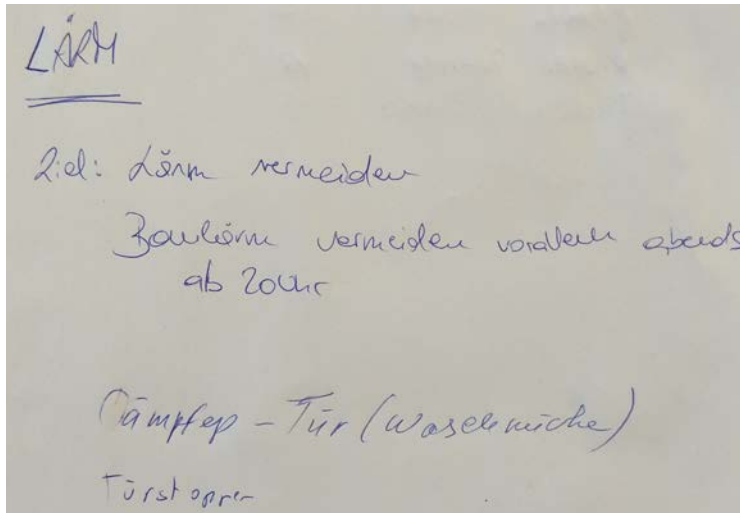 LÄRM
Ziel: Lärm vermeiden
Baulärm vermeiden vorallem abends
ab 20Uhr
Dämpfer - Tür (Waschküche)
Türstopper